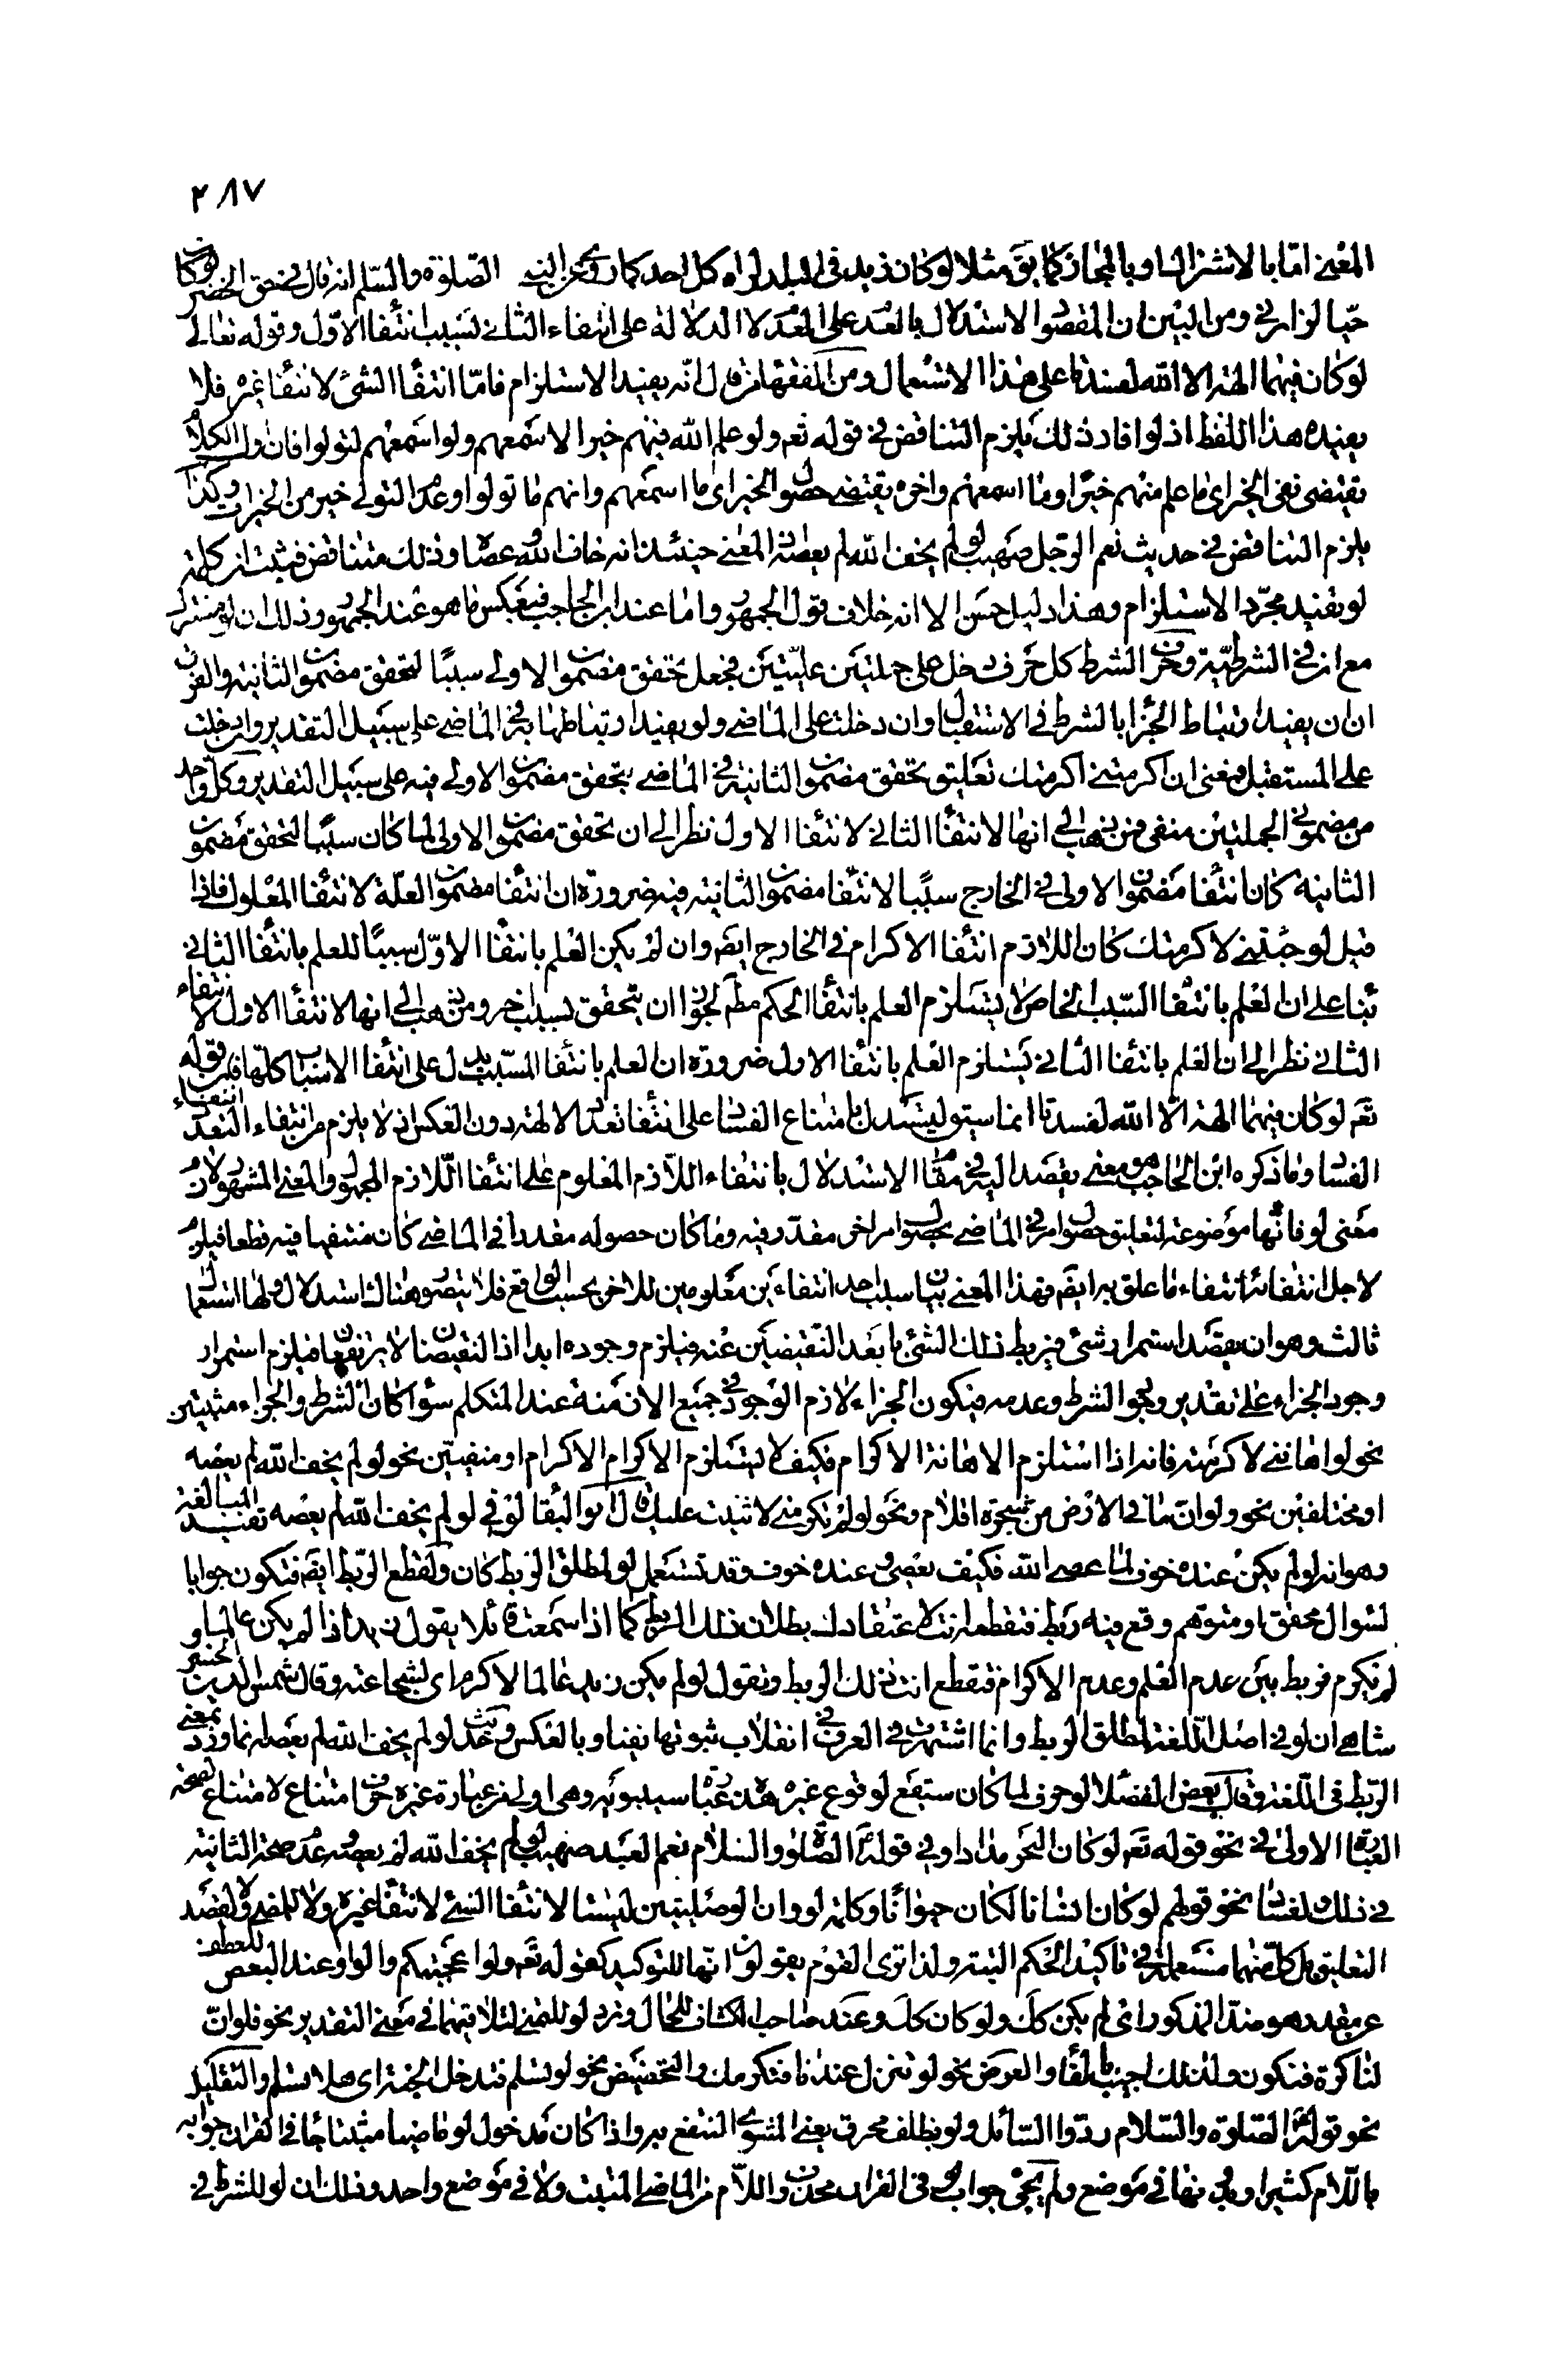 ٢٨٧
المعنى اما بالاشتراك او بالمجاز كما يق مثلا لو كان زيد فى البلد لراه كل احد كما يحكى عن النبى الصلوة والسلم انه قال فى حق الخضر لو كان
حيا لزارنى ومن البين ان المقصود الاستدلال بالعدم على العدم لا الدلالة على ان انتفاء الثانى بسبب انتفاء الاول وقوله تعالى
لو كان فيهما الهة الا الله لفسدتا على هذا الاستعمال ومن الفقها من قال انه يفيد الاستلزام فاما انتفاء الشئ لانتفاء غيره فلا
يفيده هذا اللفظ اذ لو افاد ذلك يلزم التناقض فى قوله تعم ولو علم الله فيهم خيرا لاسمعهم ولو اسمعهم لتولوا فان اول الكلام
يقتضى نفى الخير اى ما علم منهم خيرا وما اسمعهم واخره يقتضى حصول الخير اى ما اسمعهم وانهم ما تولوا وعدم التولى خير من الخيرات وكذا
يلزم التناقض فى حديث نعم الرجل صهيب لو لم يخف الله لم يعصه اذ المعنى حينئذ انه خاف الله وعصاه وذلك متناقض فثبت ان كلمة
لو يفيد مجرد الاستلزام وهذا دليل حسن الا انه خلاف قول الجمهور واما عند ابن الحاجب فبعكس ما هو عند الجمهور وذلك ان لو مشترك
مع ان فى الشرطية وحرف الشرط كل حرف دخل على جملتين فعليتين فجعل تحقق مضمون الاولى سببا لتحقق مضمون الثانية والفرق
ان ان يفيد ارتباط الجزا بالشرط فى الاستقبال وان دخلت على الماضى ولو يفيد ارتباطها به فى الماضى على سبيل التقدير وان دخلت
على المستقبل فمعنى ان اكرمتنى اكرمتك تعليق تحقق مضمون الثانية فى الماضى بتحقق مضمون الاولى فيه على سبيل التقدير وكل واحد
من مضمونى الجملتين منفى فمن ذهب الى انها لانتفاء الثانى لانتفاء الاول نظر الى ان تحقق مضمون الاولى لما كان سببا لتحقق مضمون
الثانية كان انتفاء مضمون الاولى فى الخارج سببا لانتفاء مضمون الثانية فيه ضرورة ان انتفاء مضمون العلة لانتفاء المعلول فاذا
قيل لو جئتنى لاكرمتك كان اللازم انتفاء الاكرام فى الخارج ايضم وان لم يكن العلم بانتفاء الاول سببا للعلم بانتفاء الثانى
بنا على ان العلم بانتفاء السبب الخاص لا يستلزم العلم بانتفاء الحكم مطم لجواز ان يتحقق بسبب اخر ومن ذهب الى انها لانتفاء الاول لانتفاء
الثانى نظر الى ان العلم بانتفاء الثانى يستلزم العلم بانتفاء الاول ضرورة ان العلم بانتفاء المسبب يدل على انتفاء الاسباب كلها فان قوله
تعم لو كان فيهما الهة الا الله لفسدتا انما سيق ليستدل بامتناع الفساد على انتفاء تعدد الالهة دون العكس اذ لا يلزم من انتفاء التعدد انتفاء
الفساد وما ذكره ابن الحاجب هو معنى يقصد اليه فى مقام الاستدلال بانتفاء اللازم المعلوم على انتفاء اللازم المجهول والمعنى المشهور لازم
معنى لو فانها موضوعة لتعليق حصول امر فى الماضى بحصول امر اخر مقدر فيه وما كان حصوله مقدرا فى الماضى كان منتفيا فيه قطعا فيلزم
لاجل انتفائه انتفاء ما علق به ايضم فهذا المعنى بيان سبب احد انتفاءين معلومين للاخر بحسب الواقع فلا يتصور هناك استدلال ولها استعمال
ثالث وهو ان يقصد استمرار شئ فيربط ذلك الشئ بابعد النقيضين عنه فيلزم وجوده ابدا اذ النقيضان لا يرتفعان فيلزم استمرار
وجود الجزاء على تقدير وجود الشرط وعدمه فيكون الجزاء لازم الوجود فى جميع الازمنة عند المتكلم سواء كان الشرط والجزاء مثبتين
نحو لو اهاننى لاكرمته فانه اذا استلزم الاهانة الاكرام فكيف لا يستلزم الاكرام الاكرام او منفيين نحو لو لم يخف الله لم يعصه
او مختلفين نحو ولو ان ما فى الارض من شجرة اقلام ونحو لو لم تكرمنى لاثنيت عليك قال ابو البقا لو فى لو لم يخف الله لم يعصه تفيد المبالغة
وهو انه لو لم يكن عنده خوف لما عصى الله فكيف يعصى وعنده خوف وقد تستعمل لو لمطلق الربط كان ولقطع الربط ايضم فتكون جوابا
لسؤال محقق او متوهم وقع فيه ربط فتقطعه انت لاعتقادك بطلان ذلك الربط كما اذا سمعت قائلا يقول زيد اذا لم يكن عالما او
لم يكرم فربط بين عدم العلم وعدم الاكرام فتقطع انت ذلك الربط وتقول لو لم يكن زيد عالما لاكرم اى لشجاعته وقال شمس الدين الخسرو
شاهى ان لو فى اصل اللغة لمطلق الربط وانما اشتهرت فى العرف فى انقلاب ثبوتها نفيا وبالعكس وحديث لو لم يخف الله لم يعصه انما ورد بمعنى
الربط فى اللغة وقال بعض الفضلا لو حرف لما كان سيقع لوقوع غيره هذه عبارة سيبويه وهى اولى من عبارة غيره حرف امتناع لامتناع لصحة
العبارة الاولى فى نحو قوله تعم لو كان البحر مدادا وفى قوله الصلوة والسلام نعم العبد صهيب لو لم يخف الله لم يعصه وعدم صحة الثانية
فى ذلك لفساد نحو قولهم لو كان انسانا لكان حيوانا وكلمة لو وان لو صليتين ليستا لانتفاء الشئ لانتفاء غيره ولا للمضى ولا لقصد
التعليق بل كل منهما مستعملة فى تاكيد الحكم البتة ولذا ترى القوم يقولون انها للتوكيد كقوله تعم ولو اعجبتكم والواو عند البعض للعطف
على مقدر هو ضد المذكور اى لم يكن كك ولو كان كك وعند صاحب الكشاف للحال وترد لو للتمنى لتلاقيهما فى معنى التقدير نحو فلو ان
لنا كرة فنكون ولذلك اجيب بالفاء والعرض نحو لو تنزل عندنا فنكرمك والتخصيص نحو لو تسلم فتدخل الجنة اى هلا تسلم والتقليل
نحو قوله الصلوة والسلام ردوا السائل ولو بظلف محرق يعنى المشوى المنتفع به واذا كان مدخول لو ماضيا مثبتا جا فى القران جوابه
باللام كثيرا وبدونها فى موضع ولم يجئ جواب لو فى القران محذوف اللام من الماضى المثبت ولا فى موضع واحد وذلك ان لو للشرط فى